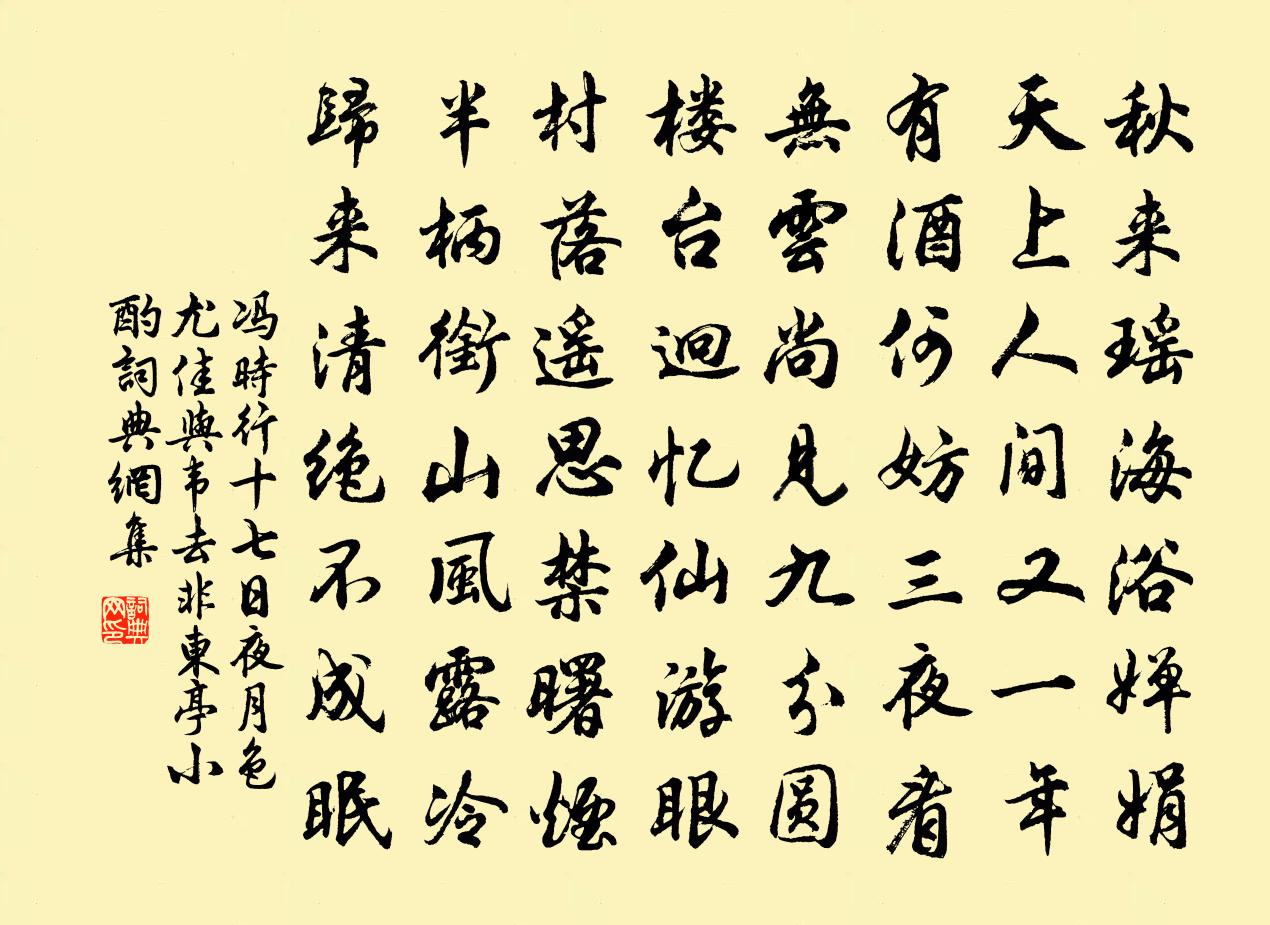 秋来瑶海浴婵娟
天上人间又一年
有酒何妨三夜看
無雲尚見九分圆
楼台迥忆仙游眼
村落遥思禁曙煙
半柄銜山風露冷
歸来清绝不成眠
冯時行十七日夜月色
尤佳與韦去非東亭小
酌詞典網集
詞典网印